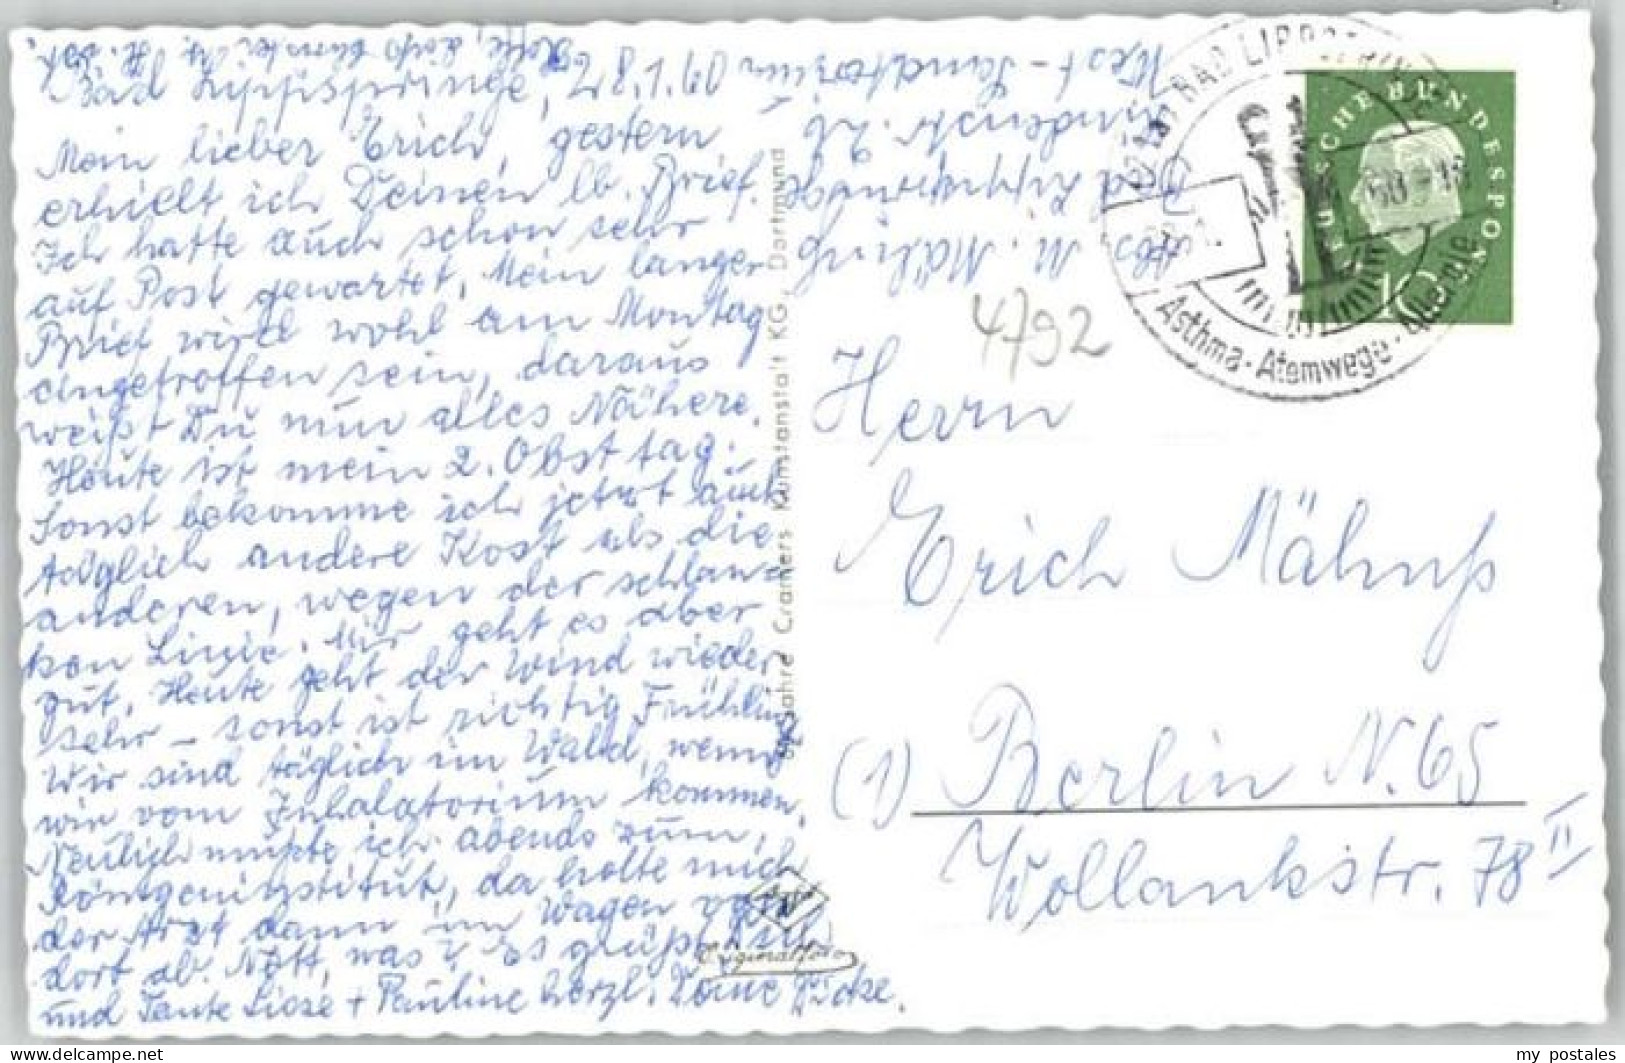 Bad Lippspringe, 28.1.60
Mein lieber Erich, gestern
erhielt ich Deinen lb. Brief.
Ich hatte auch schon sehr
auf Post gewartet. Mein langer
Brief wird wohl am Montag
eingetroffen sein, daraus
weißt Du nun alles Nähere.
Heute ist mein 2. Obsttag.
Sonst bekomme ich jetzt auch
täglich andere Kost als die
anderen, wegen der schlan-
ken Linie. Mir geht es aber
gut. Heute geht der Wind wieder
sehr – sonst ist richtig Frühling
Wir sind täglich im Wald, wenn
wir vom Inhalatorium kommen.
Neulich mußte ich abends zum
Röntgeninstitut, da holte mich
der Arzt dann im Wagen von
dort ab. Nett, was? Es grüßt Dich
und Tante Liese + Pauline herzl. Deine
Abs. M. Mähnß
Bad Lippspringe
Lindenstr. 26
West-Sanatorium
Jahre Cramers Kunstanstalt KG, Dortmund
Original-Foto
4792
BAD LIPPSPRINGE
Asthma · Atemwege · Allergie
DEUTSCHE BUNDESPOST
10
Herrn
Erich Mähnß
(1) Berlin N. 65
Wollankstr. 78 II
my_postales_de-cramers